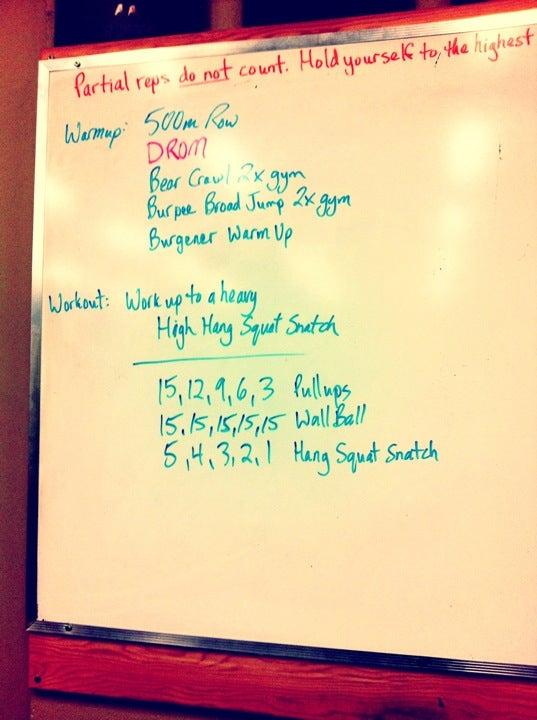 Partial reps do not count. Hold yourself to the highest
Warmup: 500m Row
DROM
Bear Crawl 2x gym
Burpee Broad Jump 2x gym
Burgener Warm Up
Workout: Work up to a heavy
High Hang Squat Snatch
15, 12, 9, 6, 3 Pullups
15, 15, 15, 15, 15 Wall Ball
5, 4, 3, 2, 1 Hang Squat Snatch